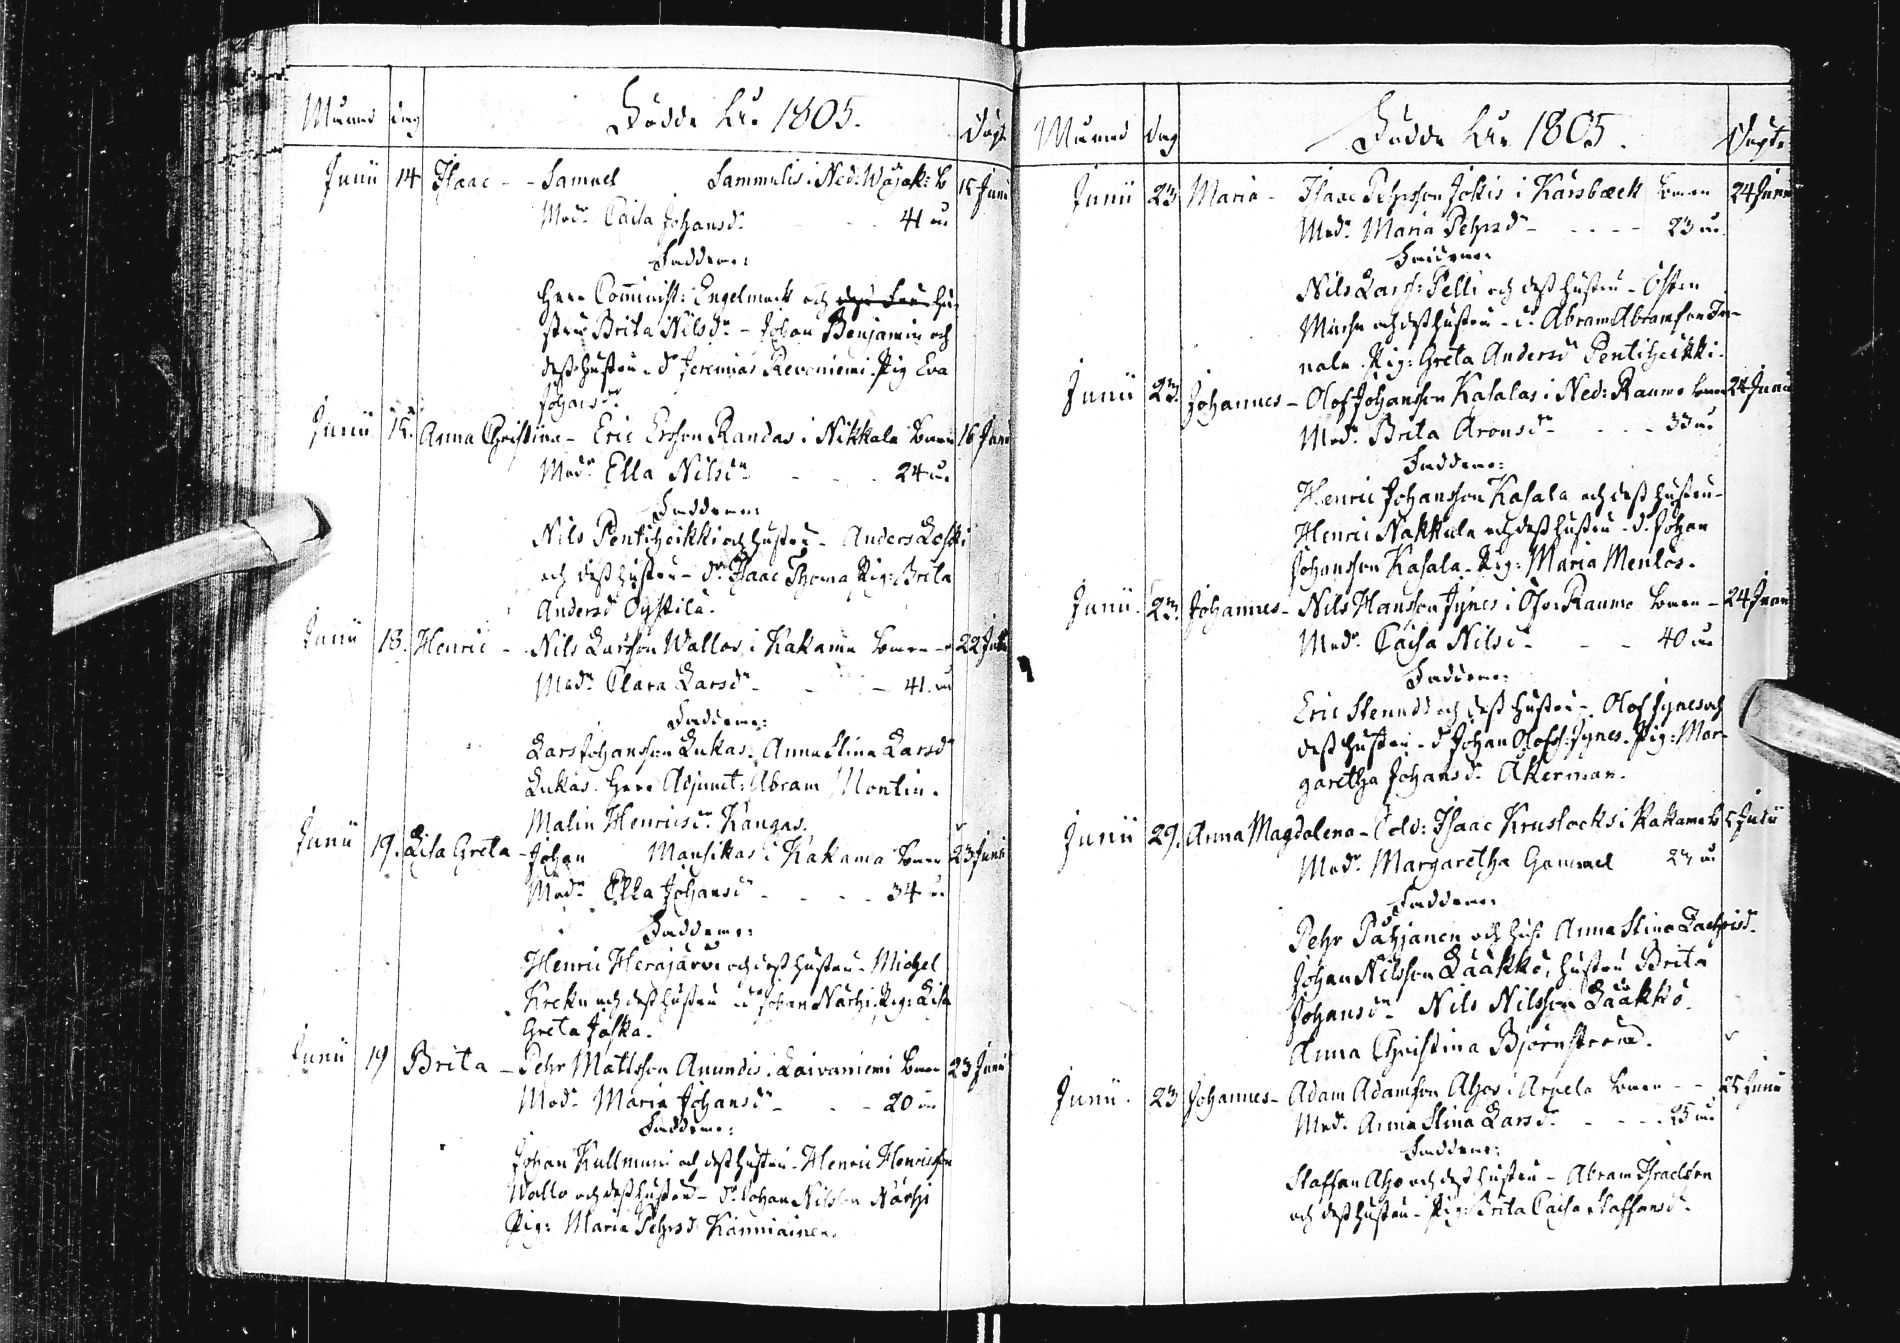 Månad dag Födde År 1805. Döpt
Junii 14 Isaac - - Samuel Sammelis i Ned: Wojak: b 15 Junii
Modr. Caisa Johansdr. - - - 41 år
Faddrar:
Herr Comminist: Engelmark och dess Fru hu-
stru Brita Nilsdr - Johan Benjamin och
dess hustru. dr Jeremias Revoniemi. Pig Eva
Johansdr.
Junii 15. Anna Christina - Eric Ersson Randas i Nikkala Bonen 16 Junii
Modr. Ella Nilsdr - - - 24 år
Faddrar:
Nils Pentiheikki och hustru - Anders Koski
och dess hustru - dr. Isaac Thoma Pig: Brita
Andersd Oystilä.
Junii 18. Henric - - Nils Larsson Wallos i Kakama Bonen - 22 Junii
Modr. Clara Larsdr - - - 41. år
Faddrar:
Lars Johansson Lukas. Anna Stina Larsdr
Lukas. Herr Adjunct: Abram Montin.
Malin Henricsdr. Kangas.
Junii 19. Lisa Greta - Johan Mansikas i Kakama Bonen 23 Junii
Modr. Ella Johansdr - - - 34 år
Faddrar:
Henric Herajärvi och dess hustru - Michel
Kreku och dess hustru dr Johan Närhi. Pig: Lisa
Greta Joska.
Junii 19 Brita - Pehr Mattsson Anundis i Laivaniemi Bonen 23 Junii
Modr. Maria Johansdr - - - 20 år
Faddrar:
Johan Kullmuni och dess hustru - Henric Henricsson
Wallo och dess hustru - dr. Johan Nilsson Närhi
Pig: Maria Pehrsd Känniäinen.
Månad dag Födde År 1805. Döpt
Junii 23 Maria - Isaac Pehrsson Jokis i Karsbäck Bonen 24 Junii
Modr. Maria Pehrsdr - - - - 23 år.
Faddrar:
Nils Larss: Pelli och dess hustru - Östen
och dess hustru - dr. Abram Abramsson
Pig: Greta Andersdr Pentiheikki.
Junii 23. Johannes - Olof Johansson Kasalas i Ned: Raumo Bonen 24 Junii
Modr. Brita Aronsdr - - - 33 år
Faddrar:
Henric Johansson Kasala och dess hustru -
Henric Nakkula och dess hustru - dr. Johan
Johansson Kasala. Pig: Maria Menlös.
Junii. 23. Johannes - Nils Hansson Jynes i Öfver Raumo Bonen - 24 Junii
Modr. Caisa Nilsdr. - - 40 år
Faddrar:
Eric Stenudd och dess hustru - Olof Jynes och
dess hustru - dr Johan Olofss: Jynes. Pig: Mar-
garetha Johansdr. Åkerman.
Junii 29. Anna Magdalena - Sold: Isaac Kruslocks i Kakama b 5 Julii
Modr. Margaretha Gammel 27 år
Faddrar:
Pehr Pähjänen och hust. Anna Stina Zachrisd.
Johan Nilsson Lääkkö, hustru Brita
Johansdr - Nils Nilsson Lääkkö.
Anna Christina Björnström.
Junii. 23 Johannes - Adam Adamsson Ahos i Arpela Bonen - - 25 Junii
Modr. Anna Stina Larsdr. - - - 25 år
Faddrar:
Staffan Aho och dess hustru - Abram Israelsson
och dess hustru - Pig: Brita Caisa Staffansdr.